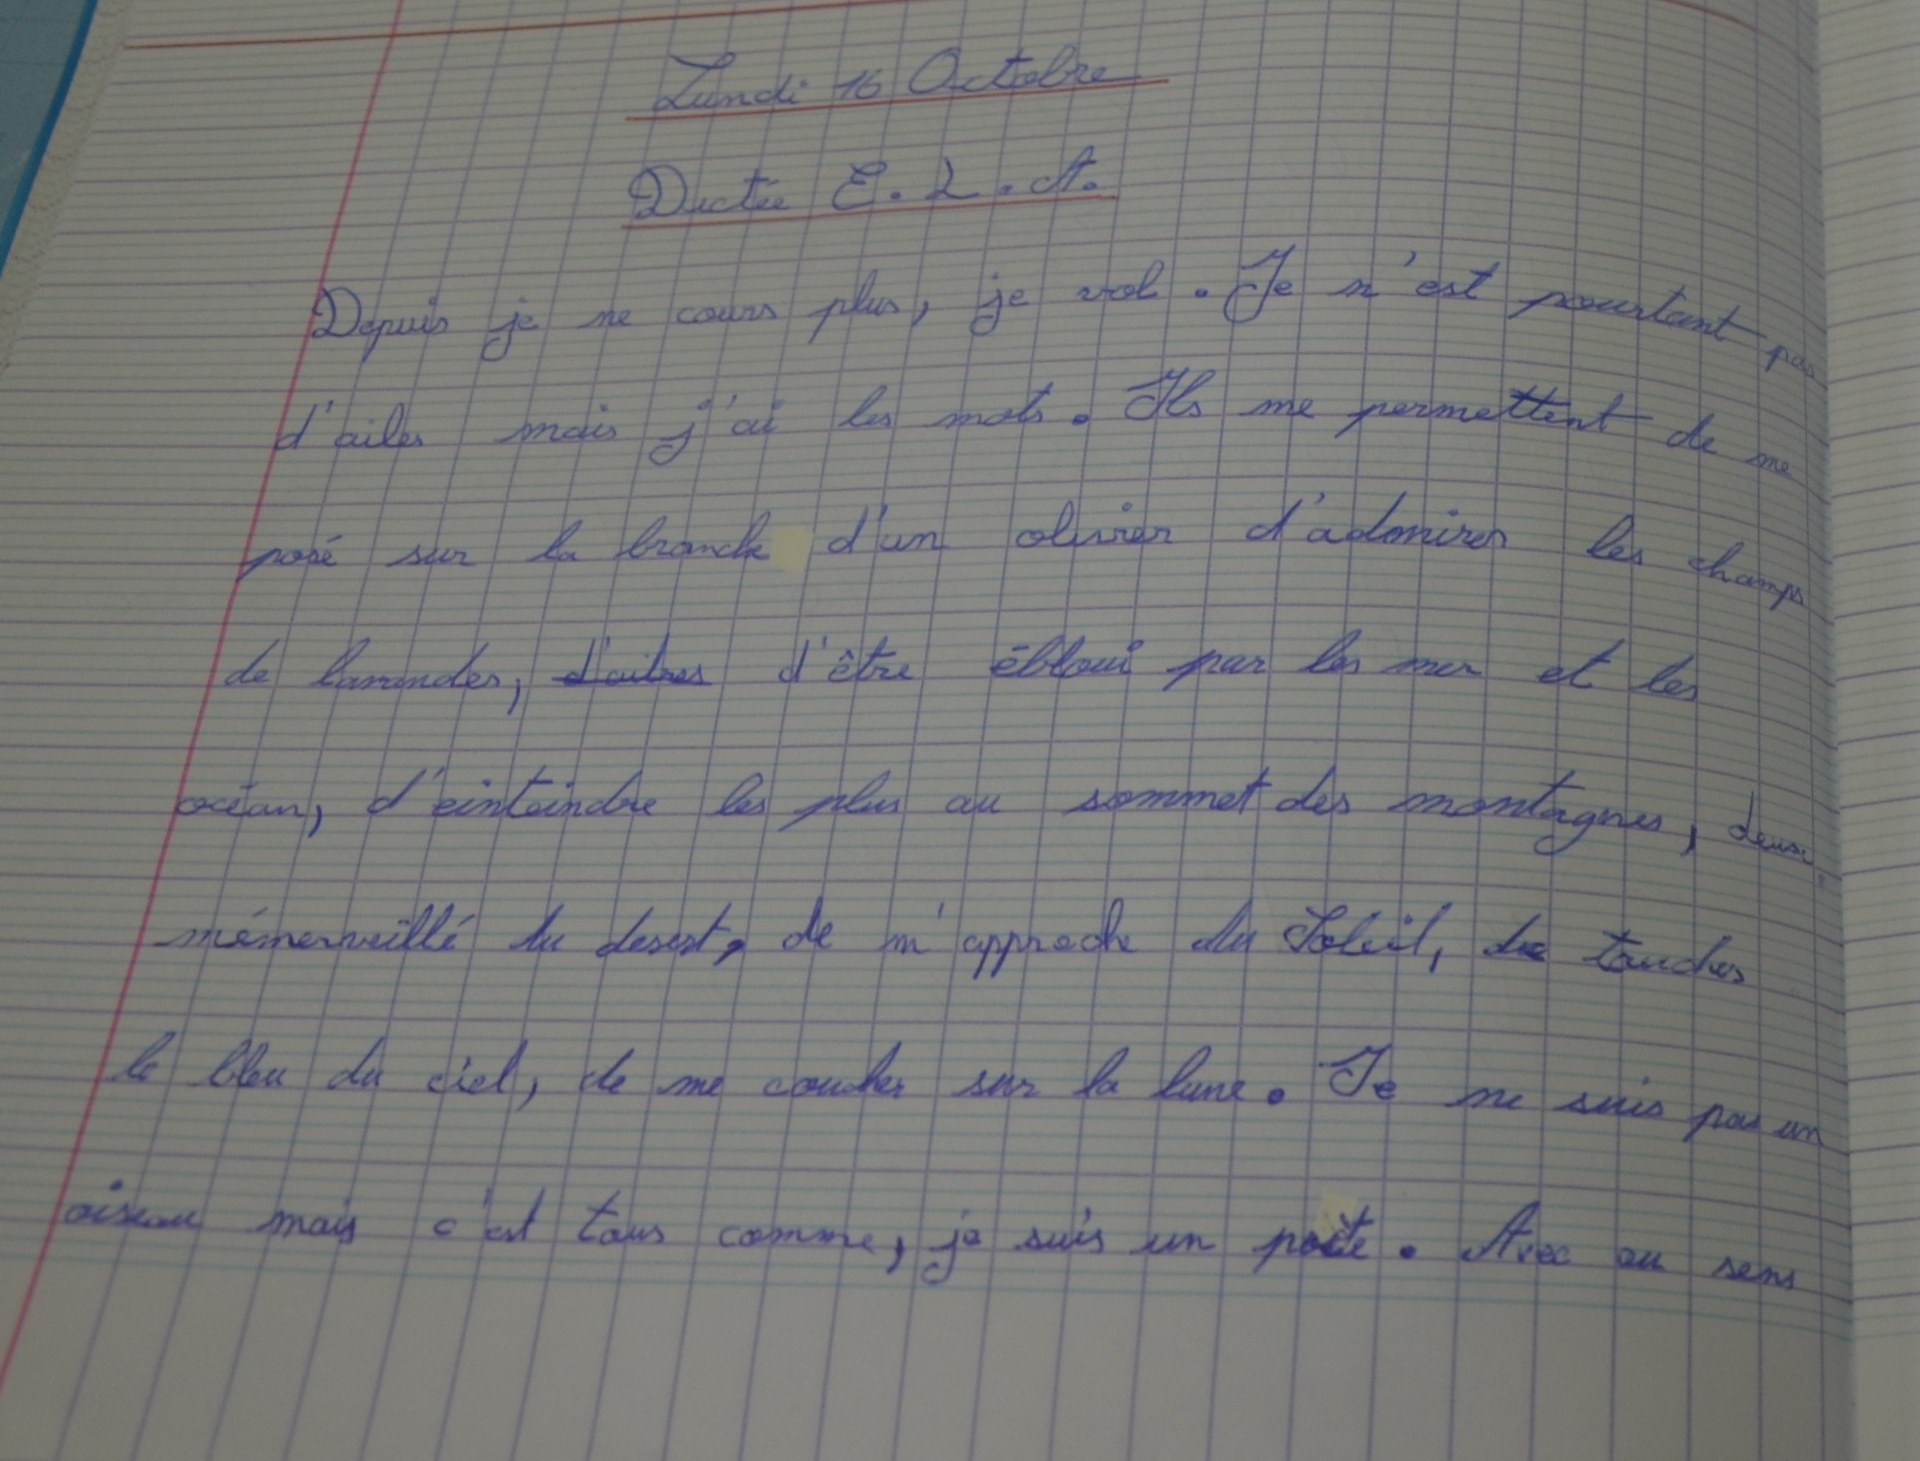 Lundi 16 Octobre
Dictée E.L.A.
Depuis je ne cours plus, je vol. Je n'est pourtant pas
d'ailes mais j'ai les mots. Ils me permettent de me
posé sur la branche d'un olivier d'admirer les champs
de lavandes, d'être ébloui par les mer et les
océan, d'einteindre les plus au sommet des montagnes,
mémerveillé du desert, de m'approche du Soleil, de touches
le bleu du ciel, de me coucher sur la lune. Je ne suis pas un
oiseau mais c'est tous comme, je suis un poète. Avec ou sens